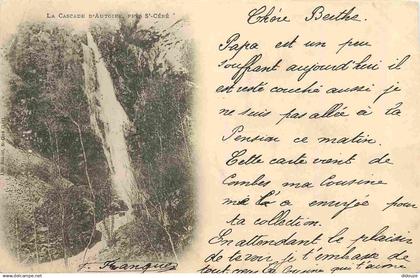 LA CASCADE D'AUTOIRE, PRÈS ST-CÉRÉ
Chère Berthe.
Papa est un peu
souffrant aujourd'hui il
est resté couché aussi je
ne suis pas allée à la
Pension ce matin.
Cette carte vient de
Combes ma Cousine
me l'a envoyée pour
ta collection.
En attendant le plaisir
de te voir je t'embrasse de
tout